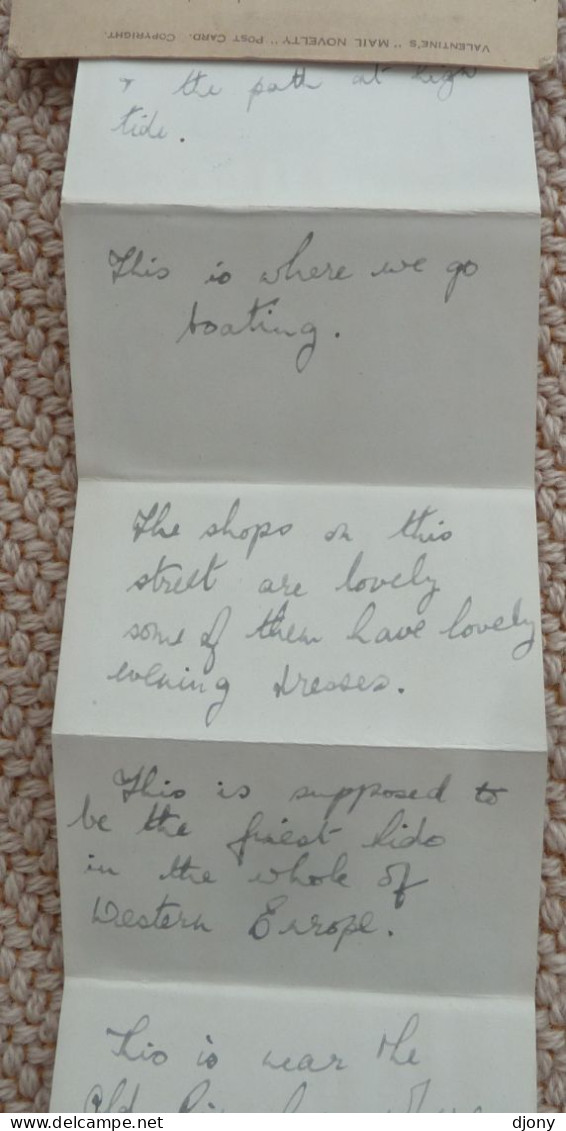 VALENTINE'S "MAIL NOVELTY" POST CARD. COPYRIGHT.
+ the path at high
tide.
This is where we go
boating.
The shops on this
street are lovely
some of them have lovely
evening dresses.
This is supposed to
be the finest lido
in the whole of
Western Europe.
This is near the
Old
djony